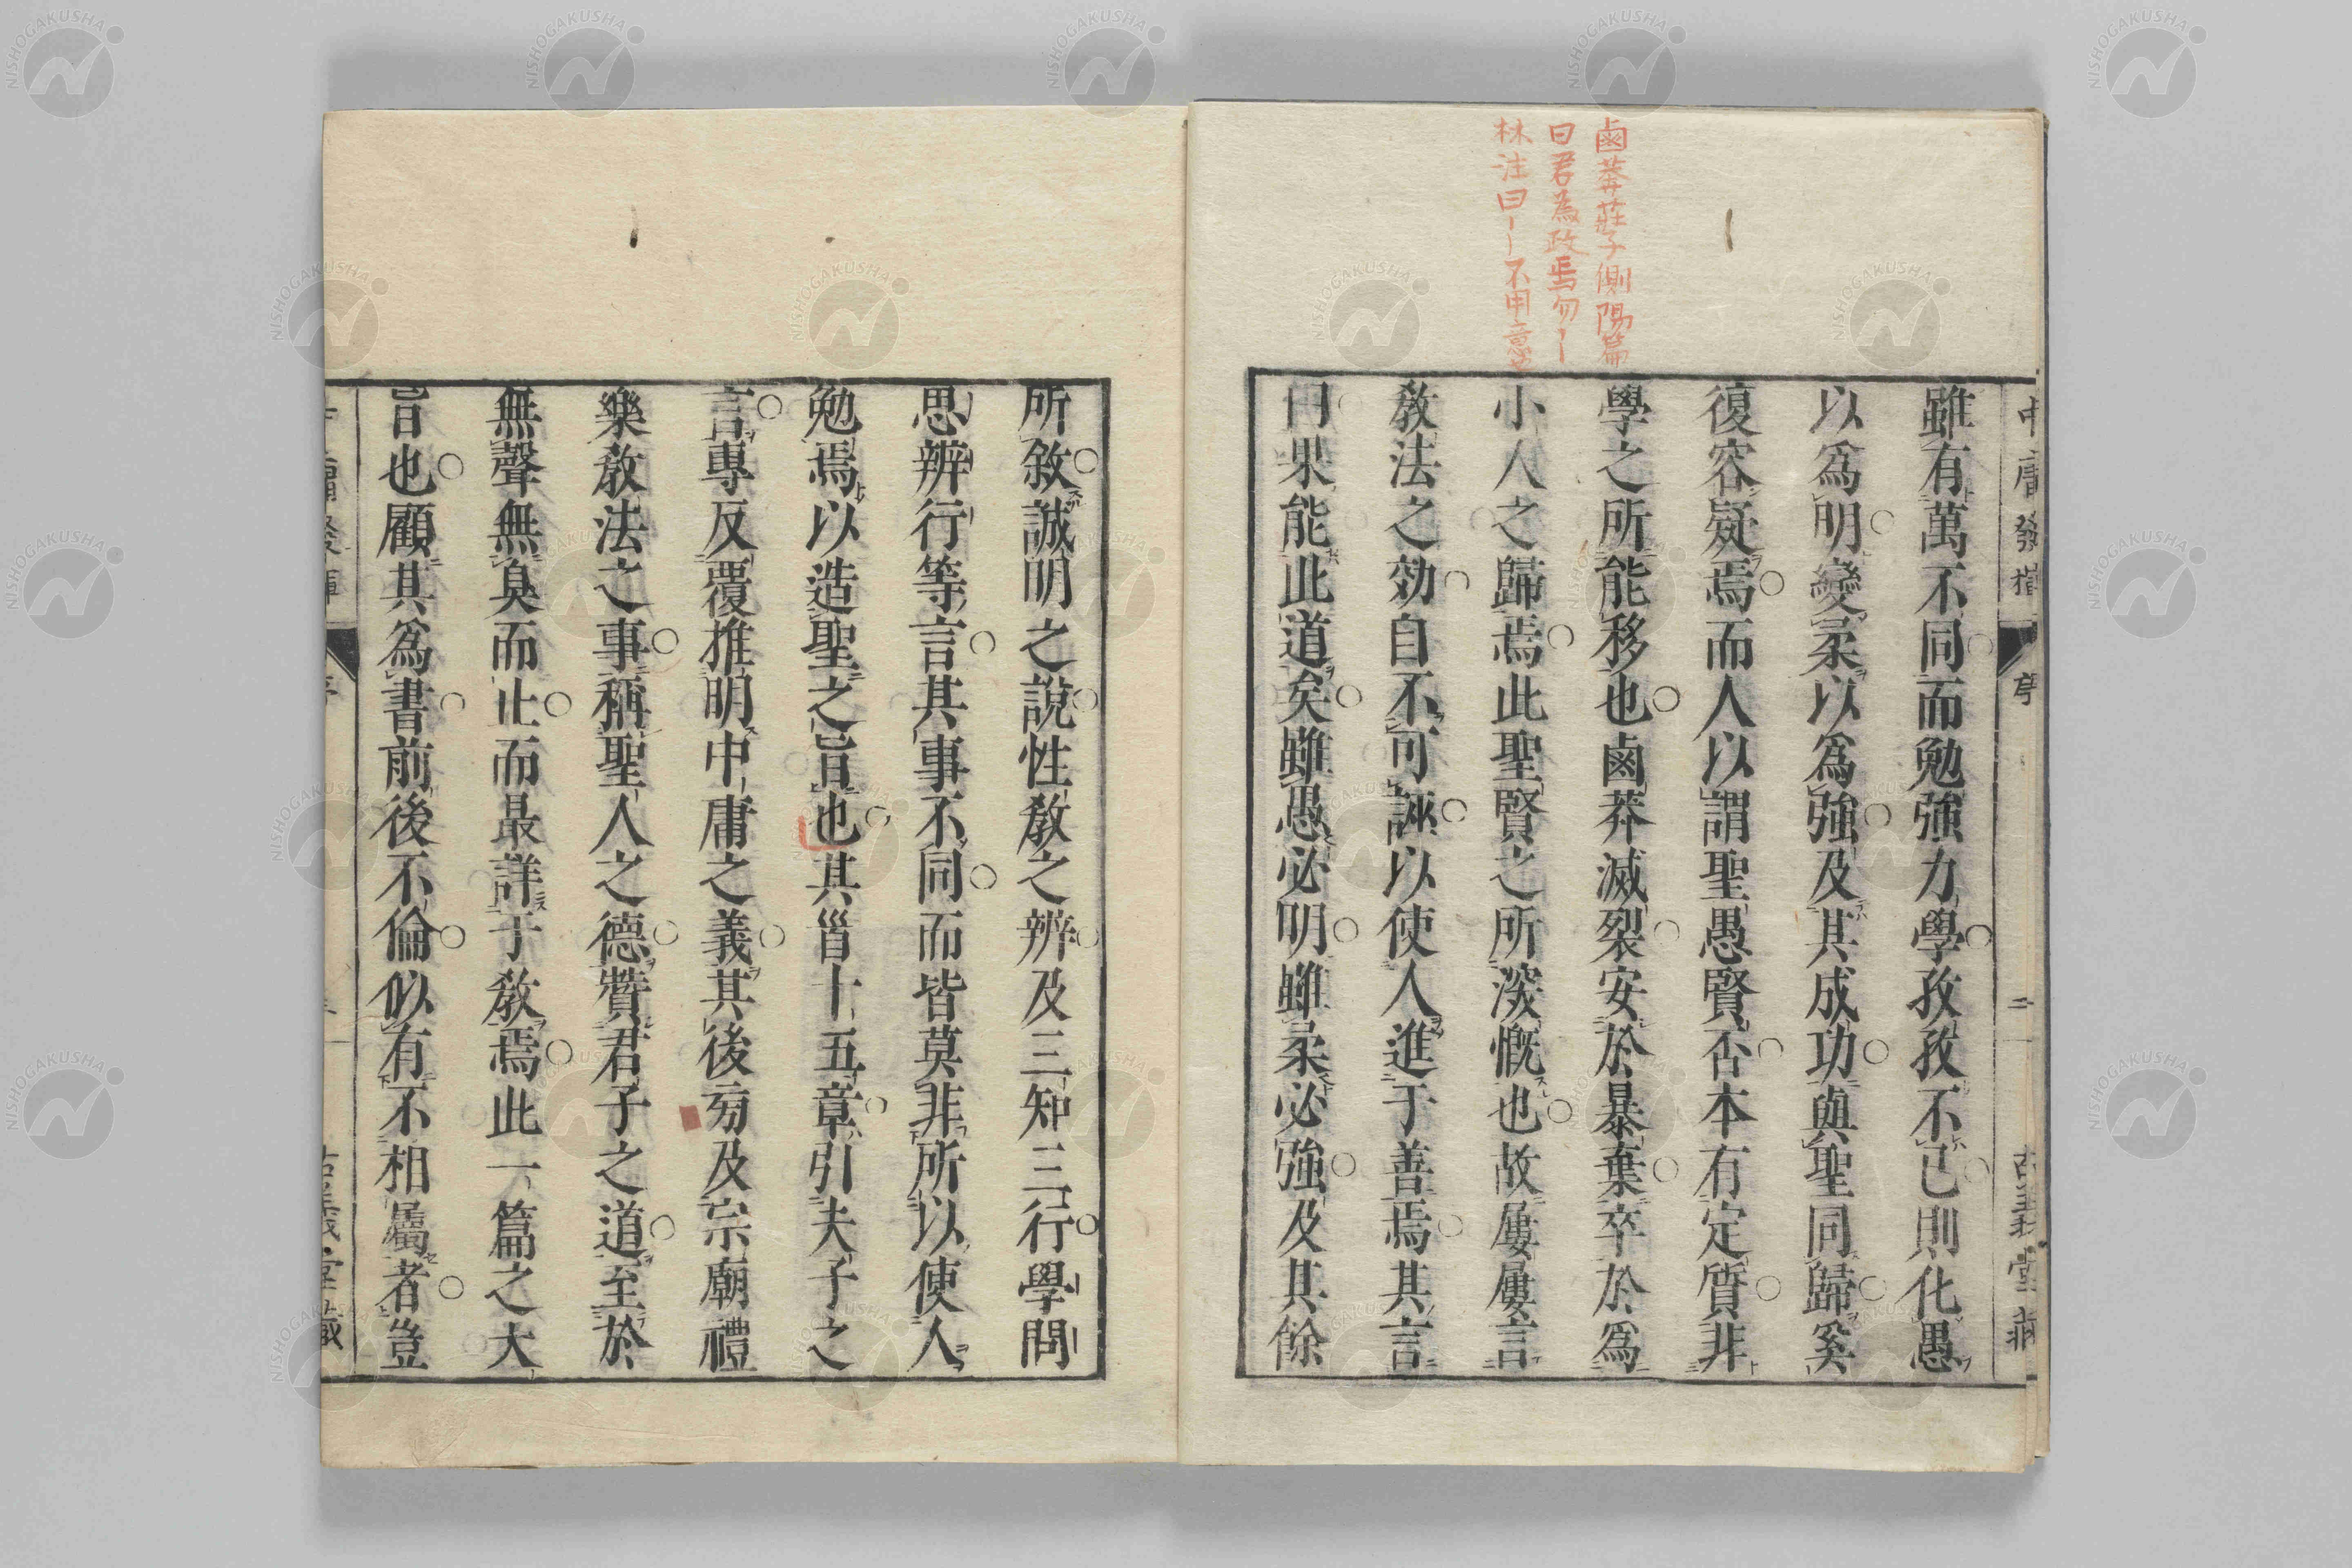 鹵莽莊子則陽篇
曰君為政焉勿〡
林注曰〡〡不用意也
中庸發揮
序
二
古義堂藏
雖有萬不同而勉強力學孜孜不已則化愚
以爲明變柔以爲強及其成功與聖同歸奚
復容疑焉而人以謂聖愚賢否本有定質非
學之所能移也鹵莽滅裂安於暴棄卒於爲
小人之歸焉此聖賢之所深慨也故屢屢言
敎法之効自不可誣以使人進于善焉其言
曰果能此道矣雖愚必明雖柔必強及其餘
所敘誠明之說性敎之辨及三知三行學問
思辨行等言其事不同而皆莫非所以使人
勉焉以造聖之旨也其首十五章引夫子之
言專反覆推明中庸之義其後旁及宗廟禮
樂敎法之事稱聖人之德贊君子之道至於
無聲無臭而止而最詳于敎焉此一篇之大
旨也顧其爲書前後不倫似有不相屬者豈
古義堂藏